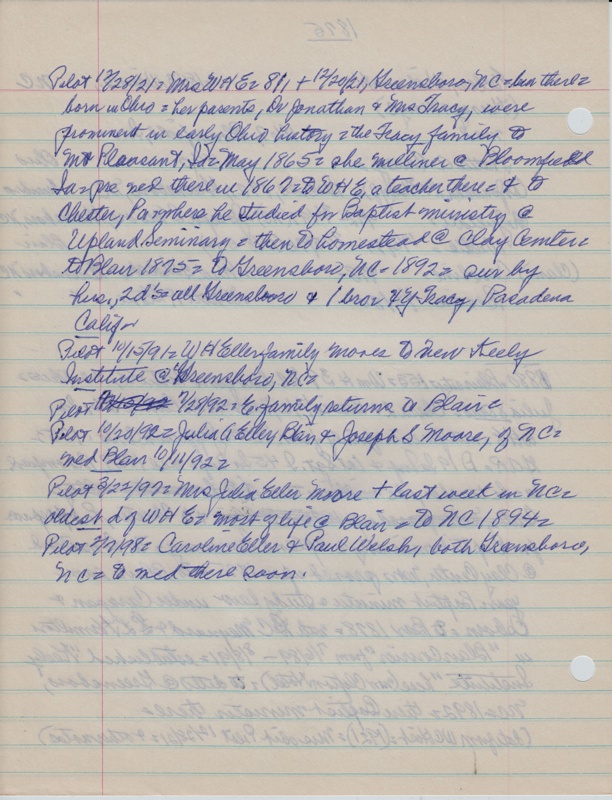 Pilot 12/28/21 = Mrs W H E = 81, + 12/20/21, Greensboro, NC = bur there =
born in Ohio = her parents, Dr Jonathan & Mrs Tracy, were
prominent in early Ohio history = the Tracy family to
Mt Pleasant, Ia = May 1865 = she milliner @ Bloomfield
Ia = pre med there in 1867 = to W H E, a teacher there = & to
Chester, Pa where he studied for Baptist ministry @
Upland Seminary = then to homestead @ Clay Center =
to Blair 1875 = to Greensboro, NC = 1892 = sur by
hus, 2 d's = all Greensboro & 1 bro = Tracy, Pasadena
Calif =
Pilot 10/15/91 = W H Eller family moves to new Keely
Institute @ Greensboro, NC =
Pilot 7/28/92 = E. family returns to Blair =
Pilot 10/20/92 = Julia A Eller, Blair & Joseph S Moore, of NC =
med Blair 10/11/92 =
Pilot 3/22/97 = Mrs Julia Eller Moore + last week in NC =
oldest d of W H E = most of life @ Blair = to NC 1894 =
Pilot 2/2/98 = Caroline Eller & Paul Welsh, both Greensboro,
NC = to med there soon.